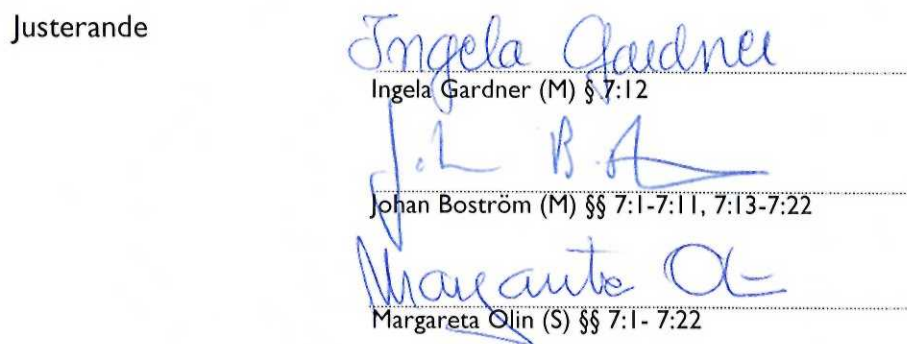 Justerande
Ingela Gardner
Ingela Gardner (M) § 7:12
Johan Boström (M) §§ 7:1-7:11, 7:13-7:22
Margareta Olin (S) §§ 7:1- 7:22